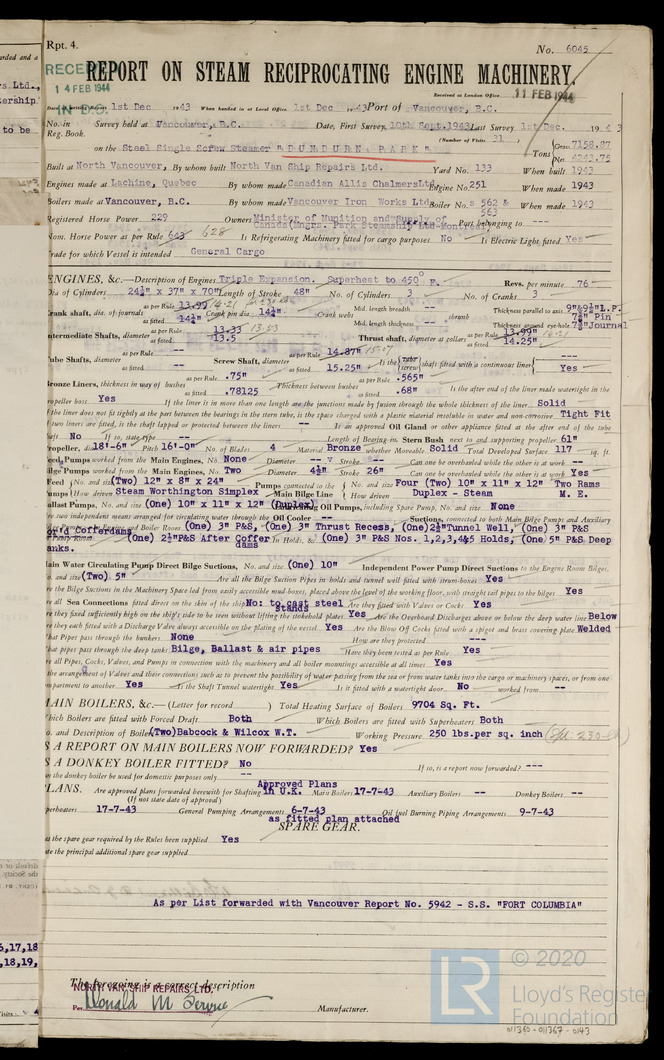 Rpt. 4.
No. 6045
RECEIVED
14 FEB 1944
IN D.S.
REPORT ON STEAM RECIPROCATING ENGINE MACHINERY.
Received at London Office 11 FEB 1944
1st Dec 1943 When handed in at Local Office 1st Dec 1943 Port of Vancouver, B.C.
No. in Survey held at Vancouver, B.C. Date, First Survey 10th Sept. 1943 Last Survey 1st Dec. 1943
Reg. Book. (Number of Visits 31)
on the Steel Single Screw Steamer "DUNDURN PARK" Tons Gross 7158.87 Net 4243.75
Built at North Vancouver, By whom built North Van Ship Repairs Ltd. Yard No. 133 When built 1943
Engines made at Lachine, Quebec By whom made Canadian Allis Chalmers Ltd. Engine No. 251 When made 1943
Boilers made at Vancouver, B.C. By whom made Vancouver Iron Works Ltd. Boiler No. s 562 & 563 When made 1943
Registered Horse Power 229 Owners Minister of Munition and Supply of Canada (Mngrs. Park Steamship Ltd-Montreal) Port belonging to ---
Nom. Horse Power as per Rule 643 628 Is Refrigerating Machinery fitted for cargo purposes No Is Electric Light fitted Yes
Trade for which Vessel is intended General Cargo
ENGINES, &c.—Description of Engines Triple Expansion. Superheat to 450° F. Revs. per minute 76
Dia of Cylinders 24½" x 37" x 70" Length of Stroke 48" No. of Cylinders 3 No. of Cranks 3
Crank shaft, dia. of journals as per Rule 13.99 14.21 as fitted 14¼" Crank pin dia. 14¼" Crank webs Mid. length breadth -- Mid. length thickness -- shrunk Thickness parallel to axis 9"&9½" L.P. Thickness around eye-hole 7½" Pin 7¾" Journal
Intermediate Shafts, diameter as per Rule 13.33 13.53 as fitted 13.5 Thrust shaft, diameter at collars as per Rule 13.99" 14.21 as fitted 14.25"
Tube Shafts, diameter as per Rule -- as fitted -- Screw Shaft, diameter as per Rule 14.87" 15.07 as fitted 15.25" Is the tube screw shaft fitted with a continuous liner --- Yes
Bronze Liners, thickness in way of bushes as per Rule .75" as fitted .78125 Thickness between bushes as per Rule .565" as fitted .68" Is the after end of the liner made watertight in the
propeller boss Yes If the liner is in more than one length are the junctions made by fusion through the whole thickness of the liner Solid
If the liner does not fit tightly at the part between the bearings in the stern tube, is the space charged with a plastic material insoluble in water and non-corrosive Tight Fit
If two liners are fitted, is the shaft lapped or protected between the liners -- Is an approved Oil Gland or other appliance fitted at the after end of the tube
shaft No If so, state type -- Length of Bearing in Stern Bush next to and supporting propeller 61"
Propeller, dia. 18'-6" Pitch 16'-0" No. of Blades 4 Material Bronze whether Moveable Solid Total Developed Surface 117 sq. ft.
Feed Pumps worked from the Main Engines, No. None Diameter -- Stroke -- Can one be overhauled while the other is at work --
Bilge Pumps worked from the Main Engines, No. Two Diameter 4½" Stroke 26" Can one be overhauled while the other is at work Yes
Feed Pumps No. and size (Two) 12" x 8" x 24" How driven Steam Worthington Simplex Pumps connected to the Main Bilge Line No. and size Four (Two) 10" x 11" x 12" Two Rams How driven Duplex - Steam M. E.
Ballast Pumps, No. and size (One) 10" x 11" x 12" (Duplex) Lubricating Oil Pumps, including Spare Pump, No. and size None
Are two independent means arranged for circulating water through the Oil Cooler -- Suctions, connected to both Main Bilge Pumps and Auxiliary
Bilge Pumps:—In Engine and Boiler Room (One) 3" P&S, (One) 3" Thrust Recess, (One) 2½" Tunnel Well, (One) 3" P&S
For'd Cofferdams (One) 2½" P&S After Cofferdams In Holds, &c. (One) 3" P&S Nos. 1,2,3,4&5 Holds, (One 5" P&S Deep
Tanks.
Main Water Circulating Pump Direct Bilge Suctions, No. and size (One) 10" Independent Power Pump Direct Suctions to the Engine Room Bilges,
No. and size (Two) 5" Are all the Bilge Suction Pipes in holds and tunnel well fitted with strum-boxes Yes
Are the Bilge Suctions in the Machinery Space led from easily accessible mud-boxes, placed above the level of the working floor, with straight tail pipes to the bilges Yes
Are all Sea Connections fitted direct on the skin of the ship No: to cast steel stands Are they fitted with Valves or Cocks Yes
Are they fixed sufficiently high on the ship's side to be seen without lifting the stokehold plates Yes Are the Overboard Discharges above or below the deep water line Below
Are they each fitted with a Discharge Valve always accessible on the plating of the vessel Yes Are the Blow Off Cocks fitted with a spigot and brass covering plate Welded
What Pipes pass through the bunkers None How are they protected
What pipes pass through the deep tanks Bilge, Ballast & air pipes Have they been tested as per Rule Yes
Are all Pipes, Cocks, Valves, and Pumps in connection with the machinery and all boiler mountings accessible at all times Yes
Is the arrangement of Valves and their connections such as to prevent the possibility of water passing from the sea or from water tanks into the cargo or machinery spaces, or from one
compartment to another Yes Is the Shaft Tunnel watertight Yes Is it fitted with a watertight door No worked from --
MAIN BOILERS, &c.—(Letter for record ) Total Heating Surface of Boilers 9704 Sq. Ft.
Which Boilers are fitted with Forced Draft Both Which Boilers are fitted with Superheaters Both
No. and Description of Boilers (Two) Babcock & Wilcox W.T. Working Pressure 250 lbs. per sq. inch
IS A REPORT ON MAIN BOILERS NOW FORWARDED? Yes
IS A DONKEY BOILER FITTED? No If so, is a report now forwarded? ---
Can the donkey boiler be used for domestic purposes only --
PLANS. Are approved plans forwarded herewith for Shafting Approved Plans in U.K. Main Boilers 17-7-43 Auxiliary Boilers -- Donkey Boilers --
(If not state date of approval)
Superheaters 17-7-43 General Pumping Arrangements 6-7-43 as fitted plan attached Oil fuel Burning Piping Arrangements 9-7-43
SPARE GEAR.
Has the spare gear required by the Rules been supplied Yes
State the principal additional spare gear supplied
As per List forwarded with Vancouver Report No. 5942 - S.S. "FORT COLUMBIA"
The foregoing is a correct description
NORTH VAN SHIP REPAIRS LTD.
Per Donald M Service Manufacturer.
© 2020
LR
Lloyd's Register
Foundation
011360-011367-0143